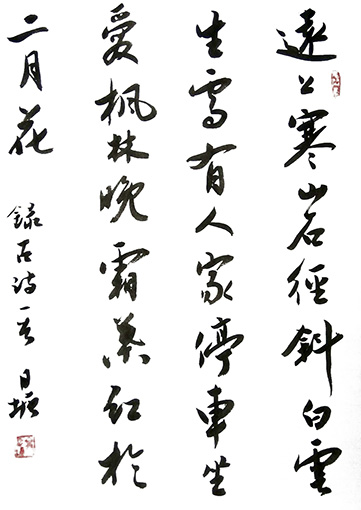 遠上寒山石徑斜白雲
生處有人家停車坐
愛楓林晚霜葉紅於
二月花
錄古詩一首